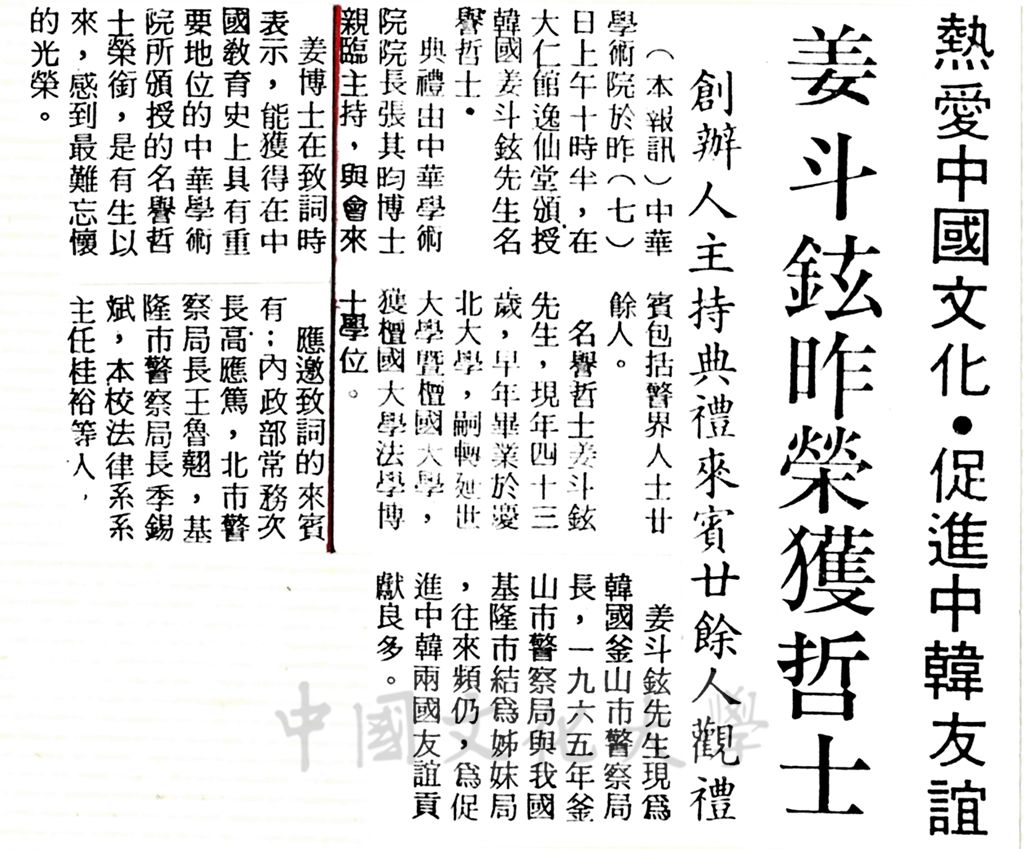 熱愛中國文化•促進中韓友誼
姜斗鉉昨榮獲哲士
創辦人主持典禮來賓廿餘人觀禮
(本報訊)中華
學術院於昨(七)
日上午十時半,在
大仁館逸仙堂頒授
韓國姜斗鉉先生名
譽哲士•
典禮由中華學術
院院長張其昀博士
親臨主持,與會來
賓包括警界人士廿
餘人。
名譽哲士姜斗鉉
先生,現年四十三
歲,早年畢業於慶
北大學,嗣轉延世
大學暨檀國大學,
獲檀國大學法學博
士學位。
姜斗鉉先生現爲
韓國釜山市警察局
長,一九六五年釜
山市警察局與我國
基隆市結爲姊妹局
,往來頻仍,爲促
進中韓兩國友誼貢
獻良多。
姜博士在致詞時
表示,能獲得在中
國教育史上具有重
要地位的中華學術
院所頒授的名譽哲
士榮銜,是有生以
來,感到最難忘懷
的光榮。
應邀致詞的來賓
有:內政部常務次
長高應篤,北市警
察局長王魯翹,基
隆市警察局長季錫
斌,本校法律系系
主任桂裕等人,
中國文化大學